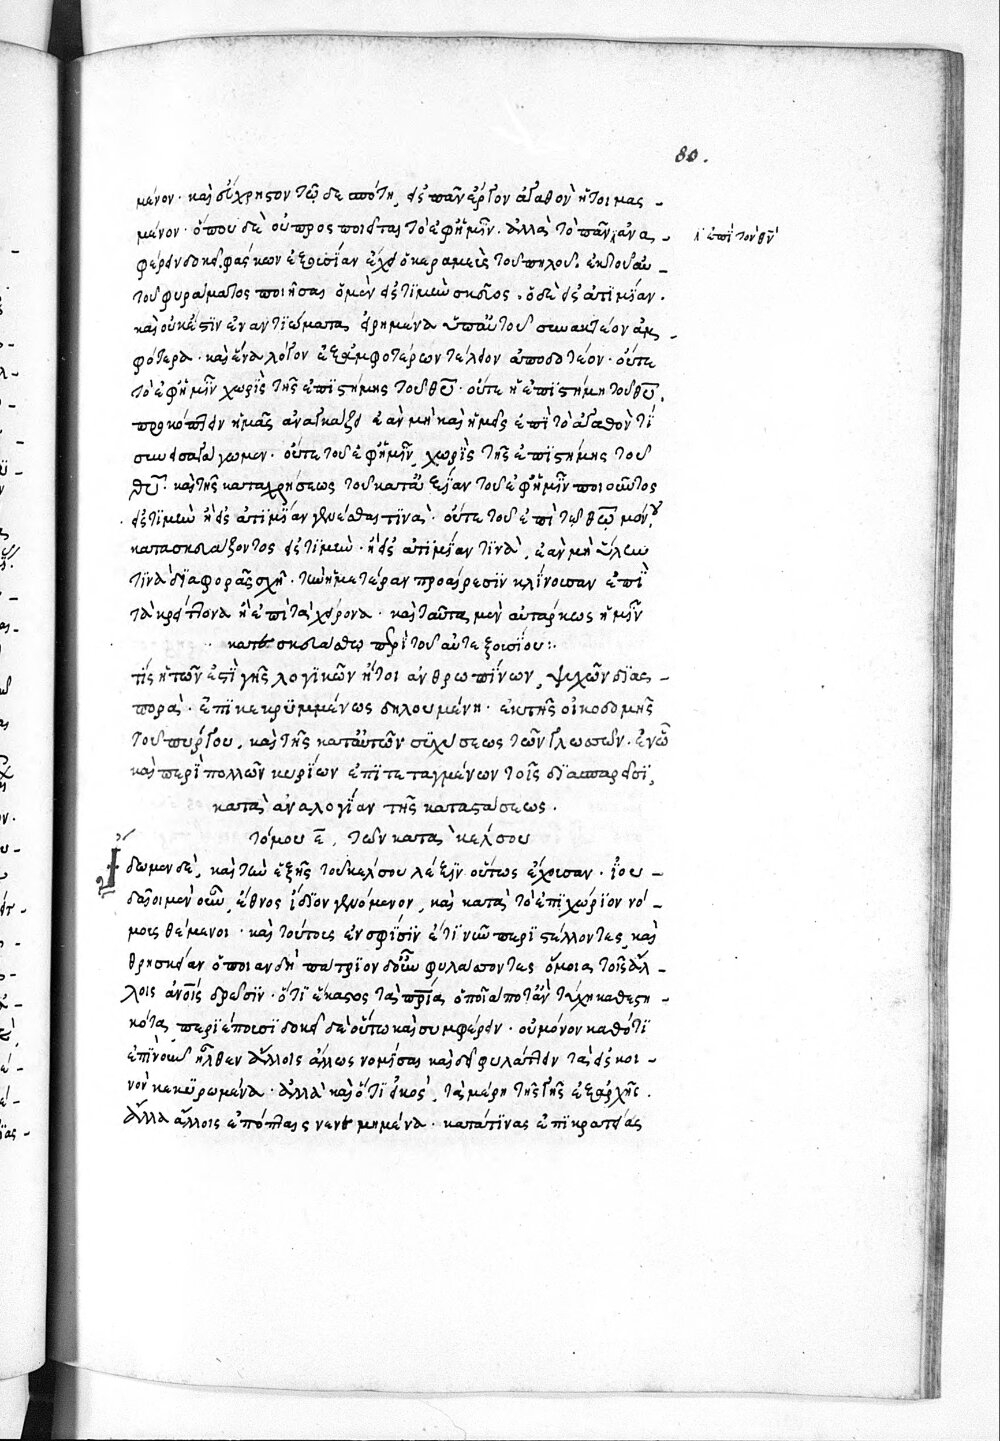 80.
μένον· καὶ εὔχρηστον τῶ δεσπότη, εἰς πᾶν ἔργον ἀγαθὸν ἡτοιμας -
μένον· ὅπου δὲ οὐ προσποιεῖται τὸ ἐφ' ἡμῖν· ἀλλὰ τὸ πᾶν ἀνα -
λ' ἐπὶ τὸν θν̄
φέρειν δοκεῖ, φάσκων ἐξουσίαν ἔχει ὁ κεραμεὺς τοῦ πηλοῦ, ἐκ τοῦ αυ -
τοῦ φυράματος ποιῆσαι ὃ μὲν εἰς τιμὴν σκεῦος, ὃ δὲ εἰς ἀτιμίαν.
καὶ οὐκ ἔστιν ἐναντιώματα εἰρημένα ὑπ' αὐτοῦ συνακτέον ἀμ -
φότερα· καὶ ἕνα λόγον ἐξ ἀμφοτέρων τέλειον ἀποδοτέον· οὔτε
τὸ ἐφ' ἡμῖν χωρὶς τῆς ἐπιστήμης τοῦ θῡ· οὔτε ἡ ἐπιστήμη τοῦ θῡ,
προκόπτειν ἡμᾶς ἀναγκάζει ἐὰν μὴ καὶ ἡμεῖς ἐπὶ τὸ ἀγαθὸν τί
συνεισαγάγωμεν· οὔτε τοῦ ἐφ' ἡμῖν, χωρὶς τῆς ἐπιστήμης τοῦ
θῡ· καὶ τῆς καταχρήσεως τοῦ κατ' ἀξίαν τοῦ ἐφ' ἡμῖν ποιοῦντος
εἰς τιμὴν ἢ εἰς ἀτιμίαν γενέσθαι τινὰ· οὔτε τοῦ ἐπὶ τῶ θῶ μόνου
κατασκευάζοντος εἰς τιμὴν· ἢ εἰς ἀτιμίαν τινὰ, ἐὰν μὴ ὕλην
τινὰ διαφορᾶς σχῆ· τὴν ἡμετέραν προαίρεσιν κλίνουσαν ἐπὶ
τὰ κρείττονα ἢ ἐπὶ τὰ χείρονα· καὶ ταῦτα μὲν αὐτάρκως ἡμῖν
κατεσκευάσθω περὶ τοῦ αὐτεξουσίου:·
τίς ἡ τῶν ἐπὶ γῆς λογικῶν ἤτοι ἀνθρωπίνων, ψυχῶν διας -
πορὰ· ἐπικεκρυμμένως δηλουμένη· ἐκ τῆς οἰκοδομῆς
τοῦ πύργου, καὶ τῆς κατ' αὐτῶν συγχύσεως τῶν γλωσσῶν· ἐν ὧ
καὶ περὶ πολλῶν κυρίων ἐπιτεταγμένων τοῖς διασπαρεῖσι,
κατὰ ἀναλογίαν τῆς καταστάσεως.
τόμου ε̄, τῶν κατὰ κέλσου
Ἴδωμεν δὲ, καὶ τὴν ἑξῆς τοῦ κέλσου λέξιν οὕτως ἔχουσαν· ἰου -
δαῖοι μὲν οὖν, ἔθνος ἴδιον γενόμενοι, καὶ κατὰ τὸ ἐπιχώριον νό -
μους θέμενοι· καὶ τούτους ἐν σφίσιν ἔτι νῦν περιστέλλοντες, καὶ
θρησκείαν ὁποίαν δὴ πάτριον δ' οὖν φυλάσσοντες ὅμοια τοῖς ἄλ -
λοις ἀνοῖς δρῶσιν· ὅτι ἕκαστος τὰ πρ̄ια, ὁποῖα ποτ' ἂν τύχη καθεστη -
κότα, περιέπουσι δοκεῖ δὲ οὕτω καὶ συμφέρειν· οὐ μόνον καθότι
ἐπὶ νοῦν ἦλθεν ἄλλοις ἄλλως νομίσαι καὶ δεῖ φυλάττειν τὰ εἰς κοι -
νὸν κεκυρωμένα· ἀλλὰ καὶ ὅτι εἰκὸς, τὰ μέρη τῆς γῆς ἐξ ἀρχῆς.
ἄλλα ἄλλοις ἐπόπταις νενεμημένα· κατά τινας ἐπικρατείας